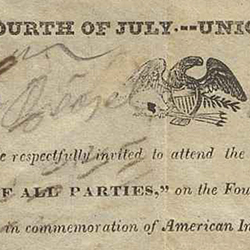 OURTH OF JULY.--UNIO
e respectfully invited to attend the
F ALL PARTIES," on the Fou
in commemoration of American In